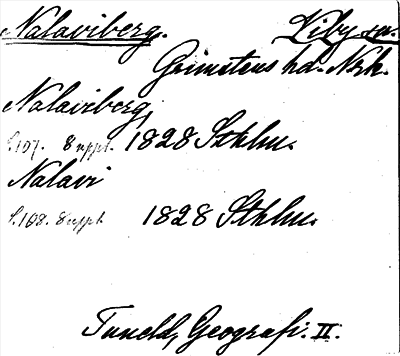 Nalaviberg. Viby sn.
Grimstens hd. Nrk.
Nalaviberg
s.107. 8 uppl. 1828 Sthlm.
Nalavi
s.108. 8 uppl. 1828 Sthlm.
Tuneld, Geografi. II.